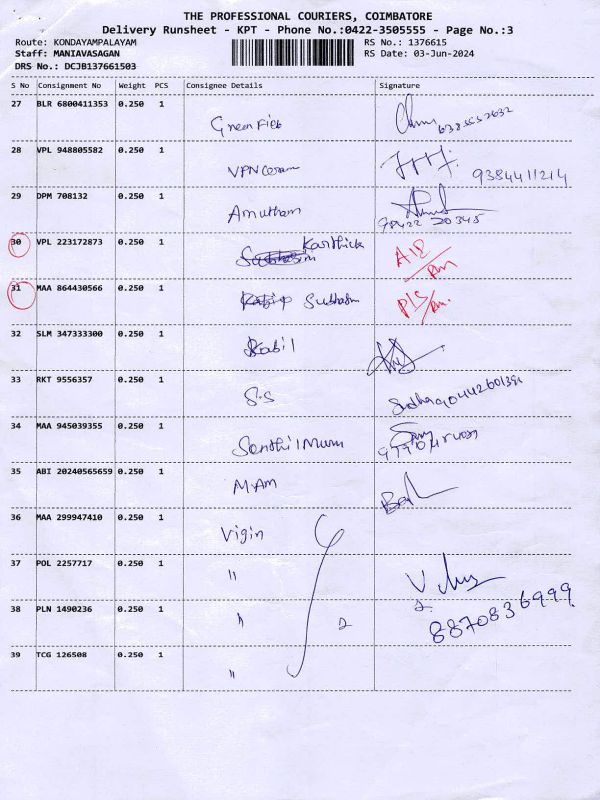 THE PROFESSIONAL COURIERS, COIMBATORE
Delivery Runsheet - KPT - Phone No.:0422-3505555 - Page No.:3
Route: KONDAYAMPALAYAM RS No.: 1376615
Staff: MANIAVASAGAN RS Date: 03-Jun-2024
DRS No.: DCJB137661503
S No Consignment No Weight PCS Consignee Details Signature
27 BLR 6800411353 0.250 1
Green Field
28 VPL 948805582 0.250 1
VPN Ceram
9384411214
29 DPM 708132 0.250 1
Amutham
98422 20345
30 VPL 223172873 0.250 1 Karthick
31 MAA 864430566 0.250 1
Subhasm
32 SLM 347333300 0.250 1
Kabil
33 RKT 9556357 0.250 1
S.S
34 MAA 945039355 0.250 1
Senthil Mum
35 ABI 20240565659 0.250 1
M.Am
36 MAA 299947410 0.250 1
Vigin
37 POL 2257717 0.250 1
"
38 PLN 1490236 0.250 1
" 2
8870836999
39 TCG 126508 0.250 1
"